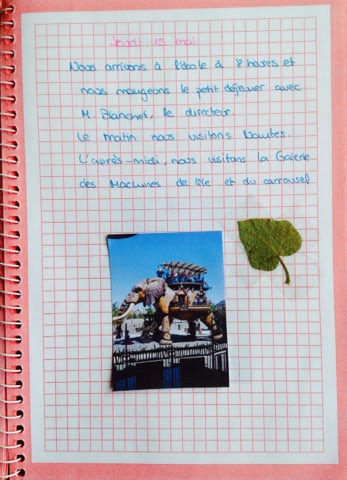 Jeudi 15 mai
Nous arrivons à l'école à 8 heures et
nous mangeons le petit déjeuner avec
M. Blanchet, le directeur.
Le matin nous visitons Nantes.
L'après-midi, nous visitons la Galerie
des Machines de l'île et du carrousel